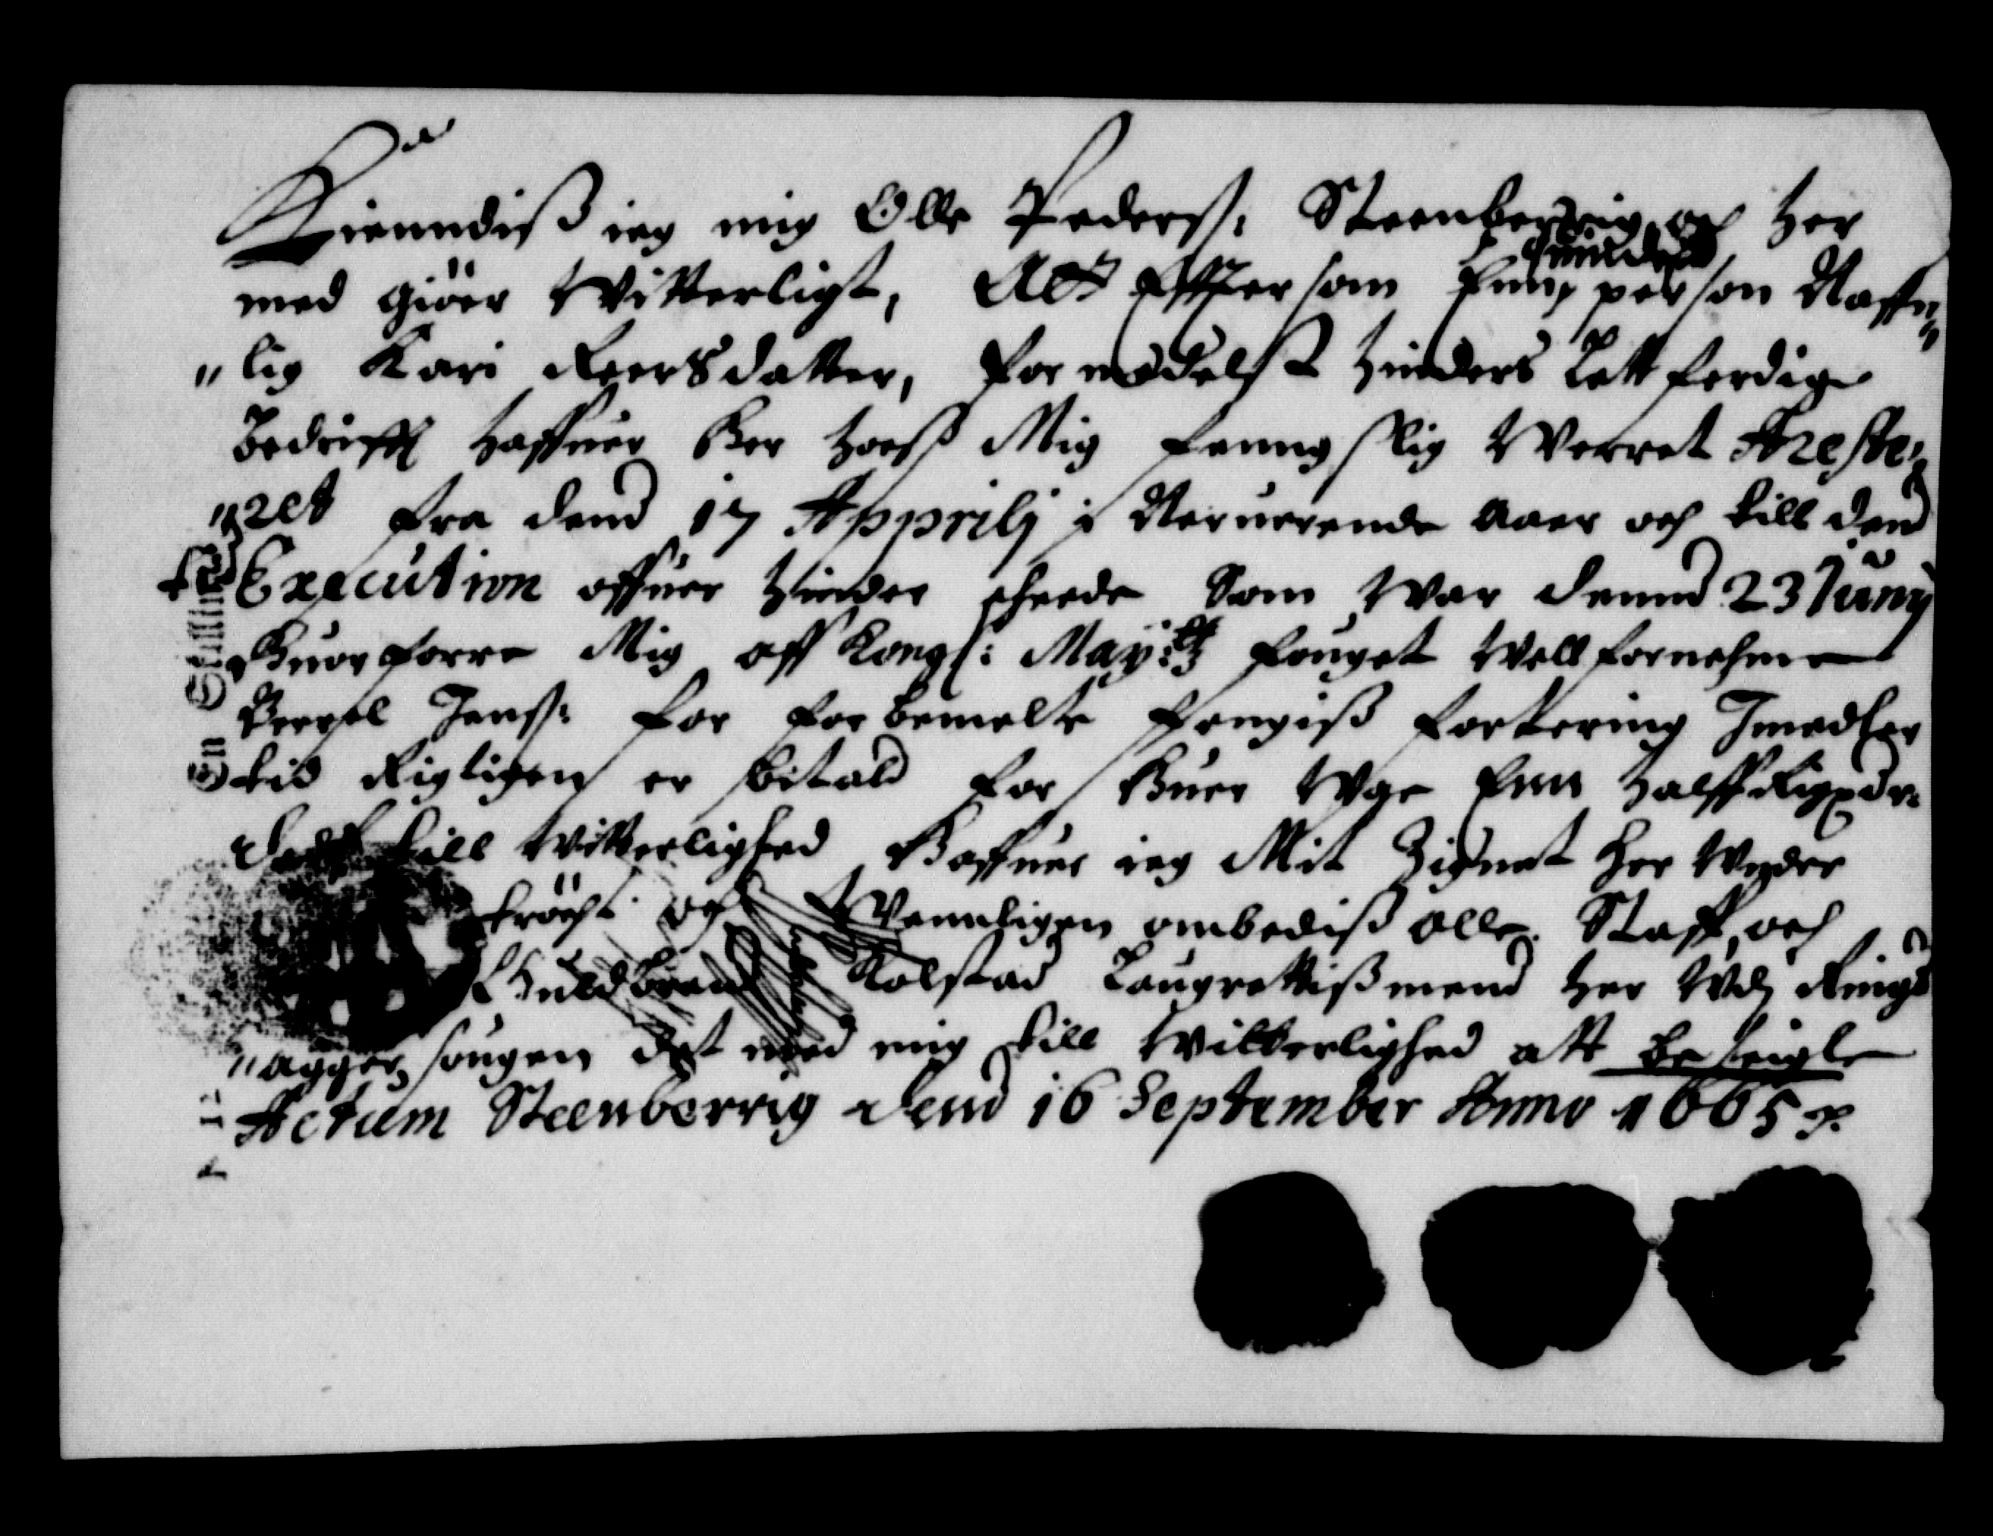 Kienndiß ieg mig Olle Pederß: Steenberrig, och her
med giöer Witterligt, Att Effter som Enn quindes person Naffn„
„lig Kari ReersDatter, formedelst hinders Lettferdige
bedrifft haffuer her hoeß Mig fenngslig Werret Areste„
„ret fra dend 17 Apprilj i Neruerende Aaer och till dend
Execution offuer hinder scheede Som War dennd 23 Juny
Huorforre Mig aff Kongl: May: tz fouget Wellfornehmme
Jenß: for forbemelte fengiß forttering Imedler
tid Rigtigen er bitald for Huer Wge Enn halff Rigxdr:
till Witterlighed Haffuer ieg Mit Zignet her Wnder
tröcht och Wennligen ombediß Olle Staff, och
Guldbrand Kolstad Laugrettißmend her Wdj Rings„
„agger sougen det med mig till Witterlighed att beseigle
Actum Steenberrig dend 16 September Anno 1665 p.
En